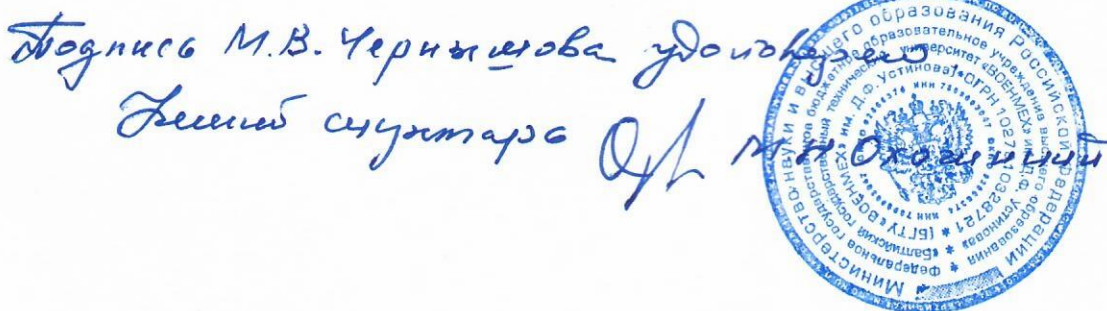 Подпись М.В. Чернышова удостоверяю
Ученый секретарь М.Н. Охочинский
Министерство науки и высшего образования Российской Федерации
Федеральное государственное бюджетное образовательное учреждение высшего образования
«Балтийский государственный технический университет «ВОЕНМЕХ» им. Д.Ф. Устинова»
(БГТУ «ВОЕНМЕХ» им. Д.Ф. Устинова)
ОГРН 1027810328721